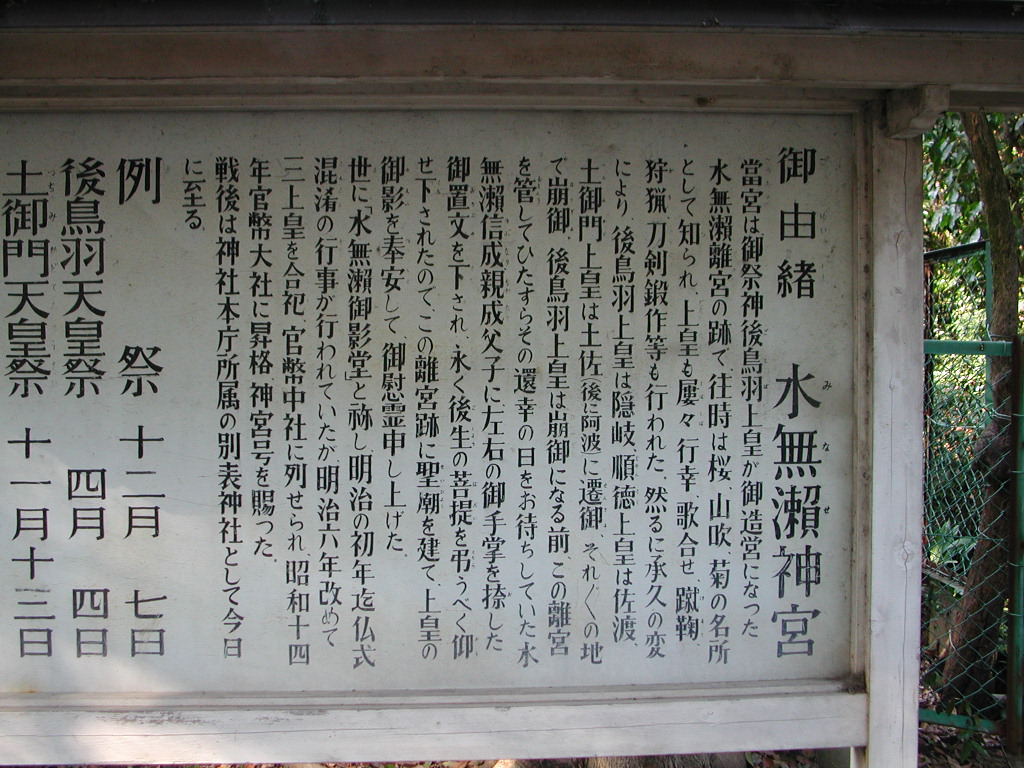 御由緒 水無瀬神宮
當宮は御祭神後鳥羽上皇が御造営になった
水無瀬離宮の跡で往時は桜、山吹、菊の名所
として知られ、上皇も屡々行幸、歌合せ、蹴鞠、
狩猟、刀剣鍛作等も行われた、然るに承久の変
により、後鳥羽上皇は隠岐、順徳上皇は佐渡、
土御門上皇は土佐(後に阿波)に遷御、それ〲の地
で崩御、後鳥羽上皇は崩御になる前、この離宮
を管してひたすらその還幸の日をお待ちしていた水
無瀬信成親成父子に左右の御手掌を捺した
御置文を下され、永く後生の菩提を弔うべく仰
せ下されたので、この離宮跡に聖廟を建て、上皇の
御影を奉安して御慰霊申し上げた、
世に「水無瀬御影堂」と祢し明治の初年迄仏式
混淆の行事が行われていたが、明治六年改めて
三上皇を合祀、官幣中社に列せられ、昭和十四
年官幣大社に昇格神宮号を賜った、
戦後は神社本庁所属の別表神社として今日
に至る、
例祭 十二月 七日
後鳥羽天皇祭 四月 四日
土御門天皇祭 十一月十三日